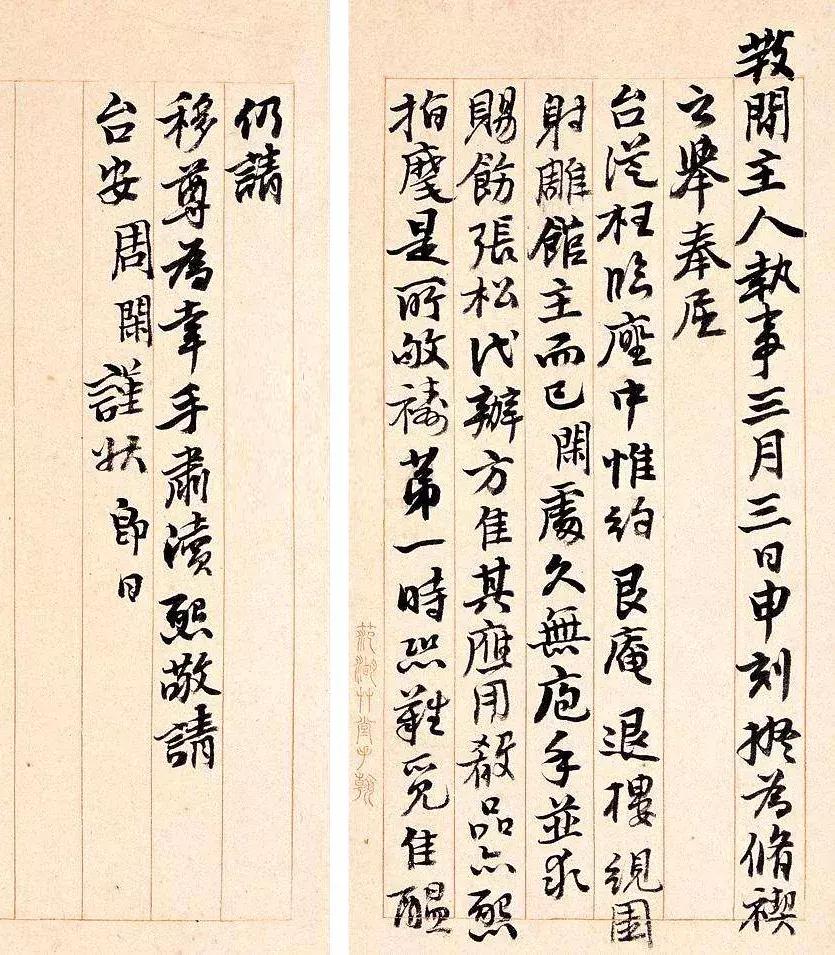 教閒主人執事三月三日申刻擬為脩禊
之舉奉屈
台從枉臨座中惟約艮庵退樓規園
射雕館主而已閑處久無庖手並求
賜飭張松代辦方佳其應用殽品亦熙
指麾是所敬禱第一時恐難覓佳醞
仍請
移尊為幸手肅瀆熙敬請
台安周閑謹狀即日
范湖草堂手翰